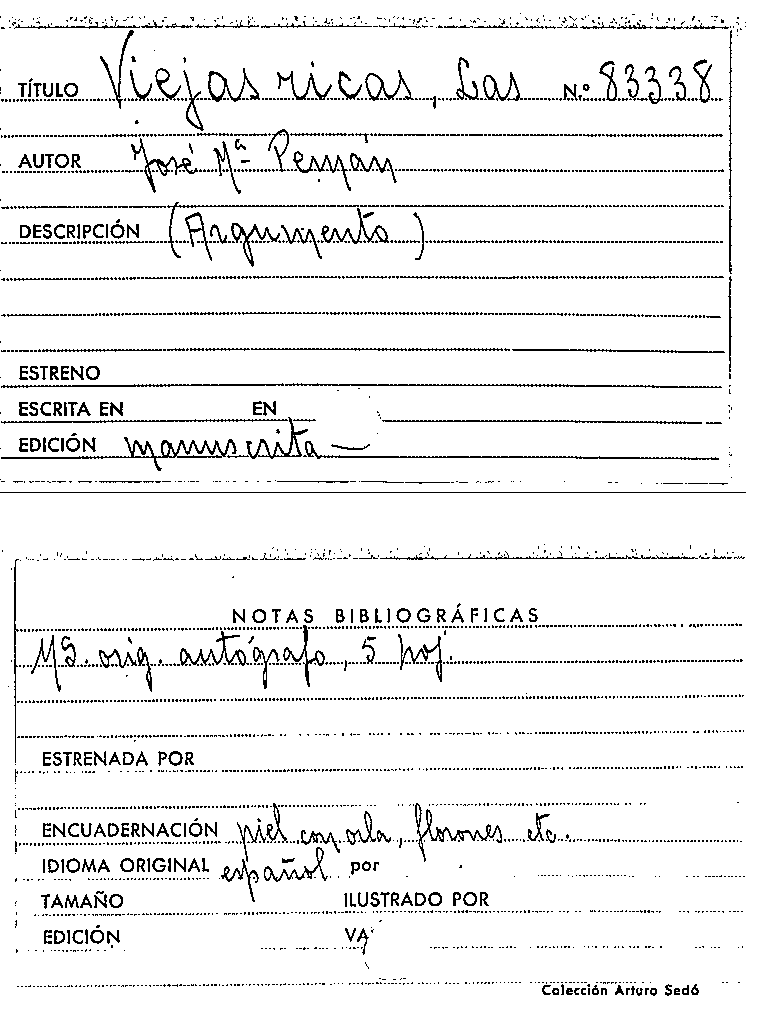 TÍTULO Viejas ricas, Las N.º 83338
AUTOR José Mª Pemán
DESCRIPCIÓN (Argumento)
ESTRENO
ESCRITA EN EN
EDICIÓN manuscrita —
NOTAS BIBLIOGRÁFICAS
Ms. orig. autógrafo, 5 hoj.
ESTRENADA POR
ENCUADERNACIÓN piel con orla, florones etc.
IDIOMA ORIGINAL español por
TAMAÑO ILUSTRADO POR
EDICIÓN VA
Colección Arturo Sedó